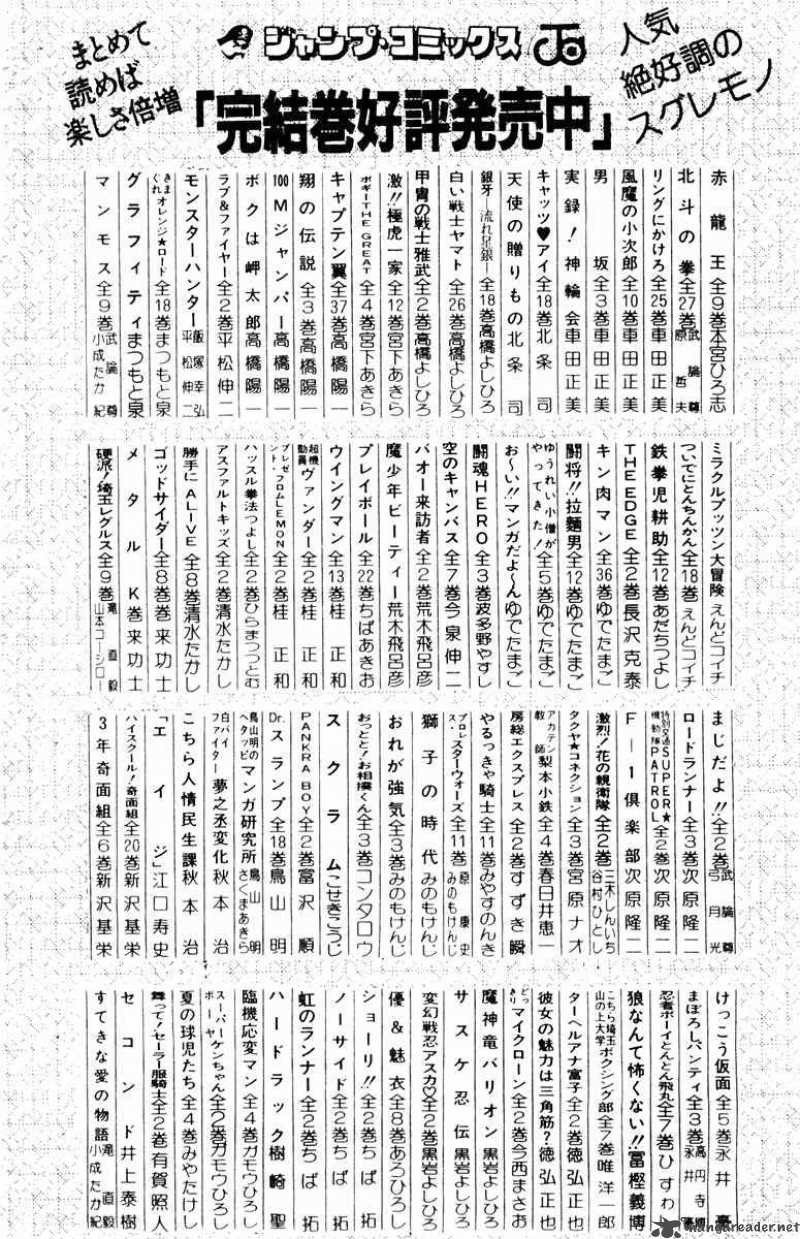 まとめて
読めば
楽しさ倍増
ジャンプ・コミックス
人気
絶好調の
スグレモノ
「完結巻好評発売中」
赤龍王全9巻本宮ひろ志
北斗の拳全27巻武論尊 原哲夫
リングにかけろ全25巻車田正美
風魔の小次郎全10巻車田正美
男坂全3巻車田正美
実録!神輪会車田正美
キャッツ♥アイ全18巻北条司
天使の贈りもの北条司
銀牙―流れ星銀―全18巻高橋よしひろ
白い戦士ヤマト全26巻高橋よしひろ
甲冑の戦士雅武全2巻高橋よしひろ
激!!極虎一家全12巻宮下あきら
ボギーTHE GREAT全4巻宮下あきら
キャプテン翼全37巻高橋陽一
翔の伝説全3巻高橋陽一
100Mジャンパー高橋陽一
ボクは岬太郎高橋陽一
ラブ&ファイヤー全2巻平松伸二
モンスターハンター飯塚幸弘 平松伸二
きまぐれオレンジ★ロード全18巻まつもと泉
グラフィティまつもと泉
マンモス全9巻武論尊 小成たか紀
ミラクルプッツン大冒険えんどコイチ
ついでにとんちんかん全18巻えんどコイチ
鉄拳児耕助全12巻あだちつよし
THE EDGE全2巻長沢克泰
キン肉マン全36巻ゆでたまご
闘将!!拉麵男全12巻ゆでたまご
ゆうれい小僧がやってきた!全5巻ゆでたまご
お〜い!!マンガだよ〜んゆでたまご
闘魂HERO全3巻波多野やすし
空のキャンバス全7巻今泉伸二
バオー来訪者全2巻荒木飛呂彦
魔少年ビーティー荒木飛呂彦
プレイボール全22巻ちばあきお
ウイングマン全13巻桂正和
超機動員ヴァンダー全2巻桂正和
プレゼント・フロムLEMON全2巻桂正和
ハッスル拳法つよし全2巻ひらまつつとむ
アスファルトキッズ全2巻清水たかし
勝手にALIVE全8巻清水たかし
ゴッドサイダー全8巻巻来功士
メタルK巻来功士
硬派!埼玉レグルス全9巻滝直毅 山本コーシロー
まじだよ!!全2巻武論尊 弓月光
ロードランナー全3巻次原隆二
特別交通機動隊SUPER★PATROL全2巻次原隆二
F―1倶楽部次原隆二
激烈!花の親衛隊全2巻三木しんいち 谷村ひとし
タクヤ★コネクション全3巻宮原ナオ
アカテン教師梨本小鉄全4巻春日井恵一
房総エクスプレス全2巻すずき瞬
やるっきゃ騎士全11巻みやすのんき
プロレス・スターウォーズ全11巻原康史 みのもけんじ
獅子の時代みのもけんじ
おれが強気全3巻みのもけんじ
おっとと!お相撲くん全3巻コンタロウ
スクラムこせきこうじ
PANKRA BOY全2巻富沢順
Dr.スランプ全18巻鳥山明
鳥山明のヘタッピマンガ研究所鳥山明 さくまあきら
白バイファイター夢之丞変化秋本治
こちら人情民生課秋本治
「エイジ」江口寿史
ハイスクール!奇面組全20巻新沢基栄
3年奇面組全6巻新沢基栄
けっこう仮面全5巻永井豪
まぼろしパンティ全3巻高円寺博 永井豪
忍者ボーイとんとん飛丸全7巻ひすわし
狼なんて怖くない!!冨樫義博
こちら埼玉山の上大学ボクシング部全7巻唯洋一郎
ターヘルアナ富子全2巻徳弘正也
彼女の魅力は三角筋?徳弘正也
どっきりマイクローン全2巻今西まさお
魔神竜バリオン黒岩よしひろ
サスケ忍伝黒岩よしひろ
変幻戦忍アスカ♡全2巻黒岩よしひろ
優&魅衣全8巻あろひろし
ショーリ!!全2巻ちば拓
ノーサイド全2巻ちば拓
虹のランナー全2巻ちば拓
ハードラック樹崎聖
臨機応変マン全4巻ガモウひろし
スーパーボーヤケンちゃん全2巻ガモウひろし
夏の球児たち全4巻みやたけし
舞って!セーラー服騎士全2巻有賀照人
セコンド井上泰樹
すてきな愛の物語滝直毅 小成たか紀
mangareader.net